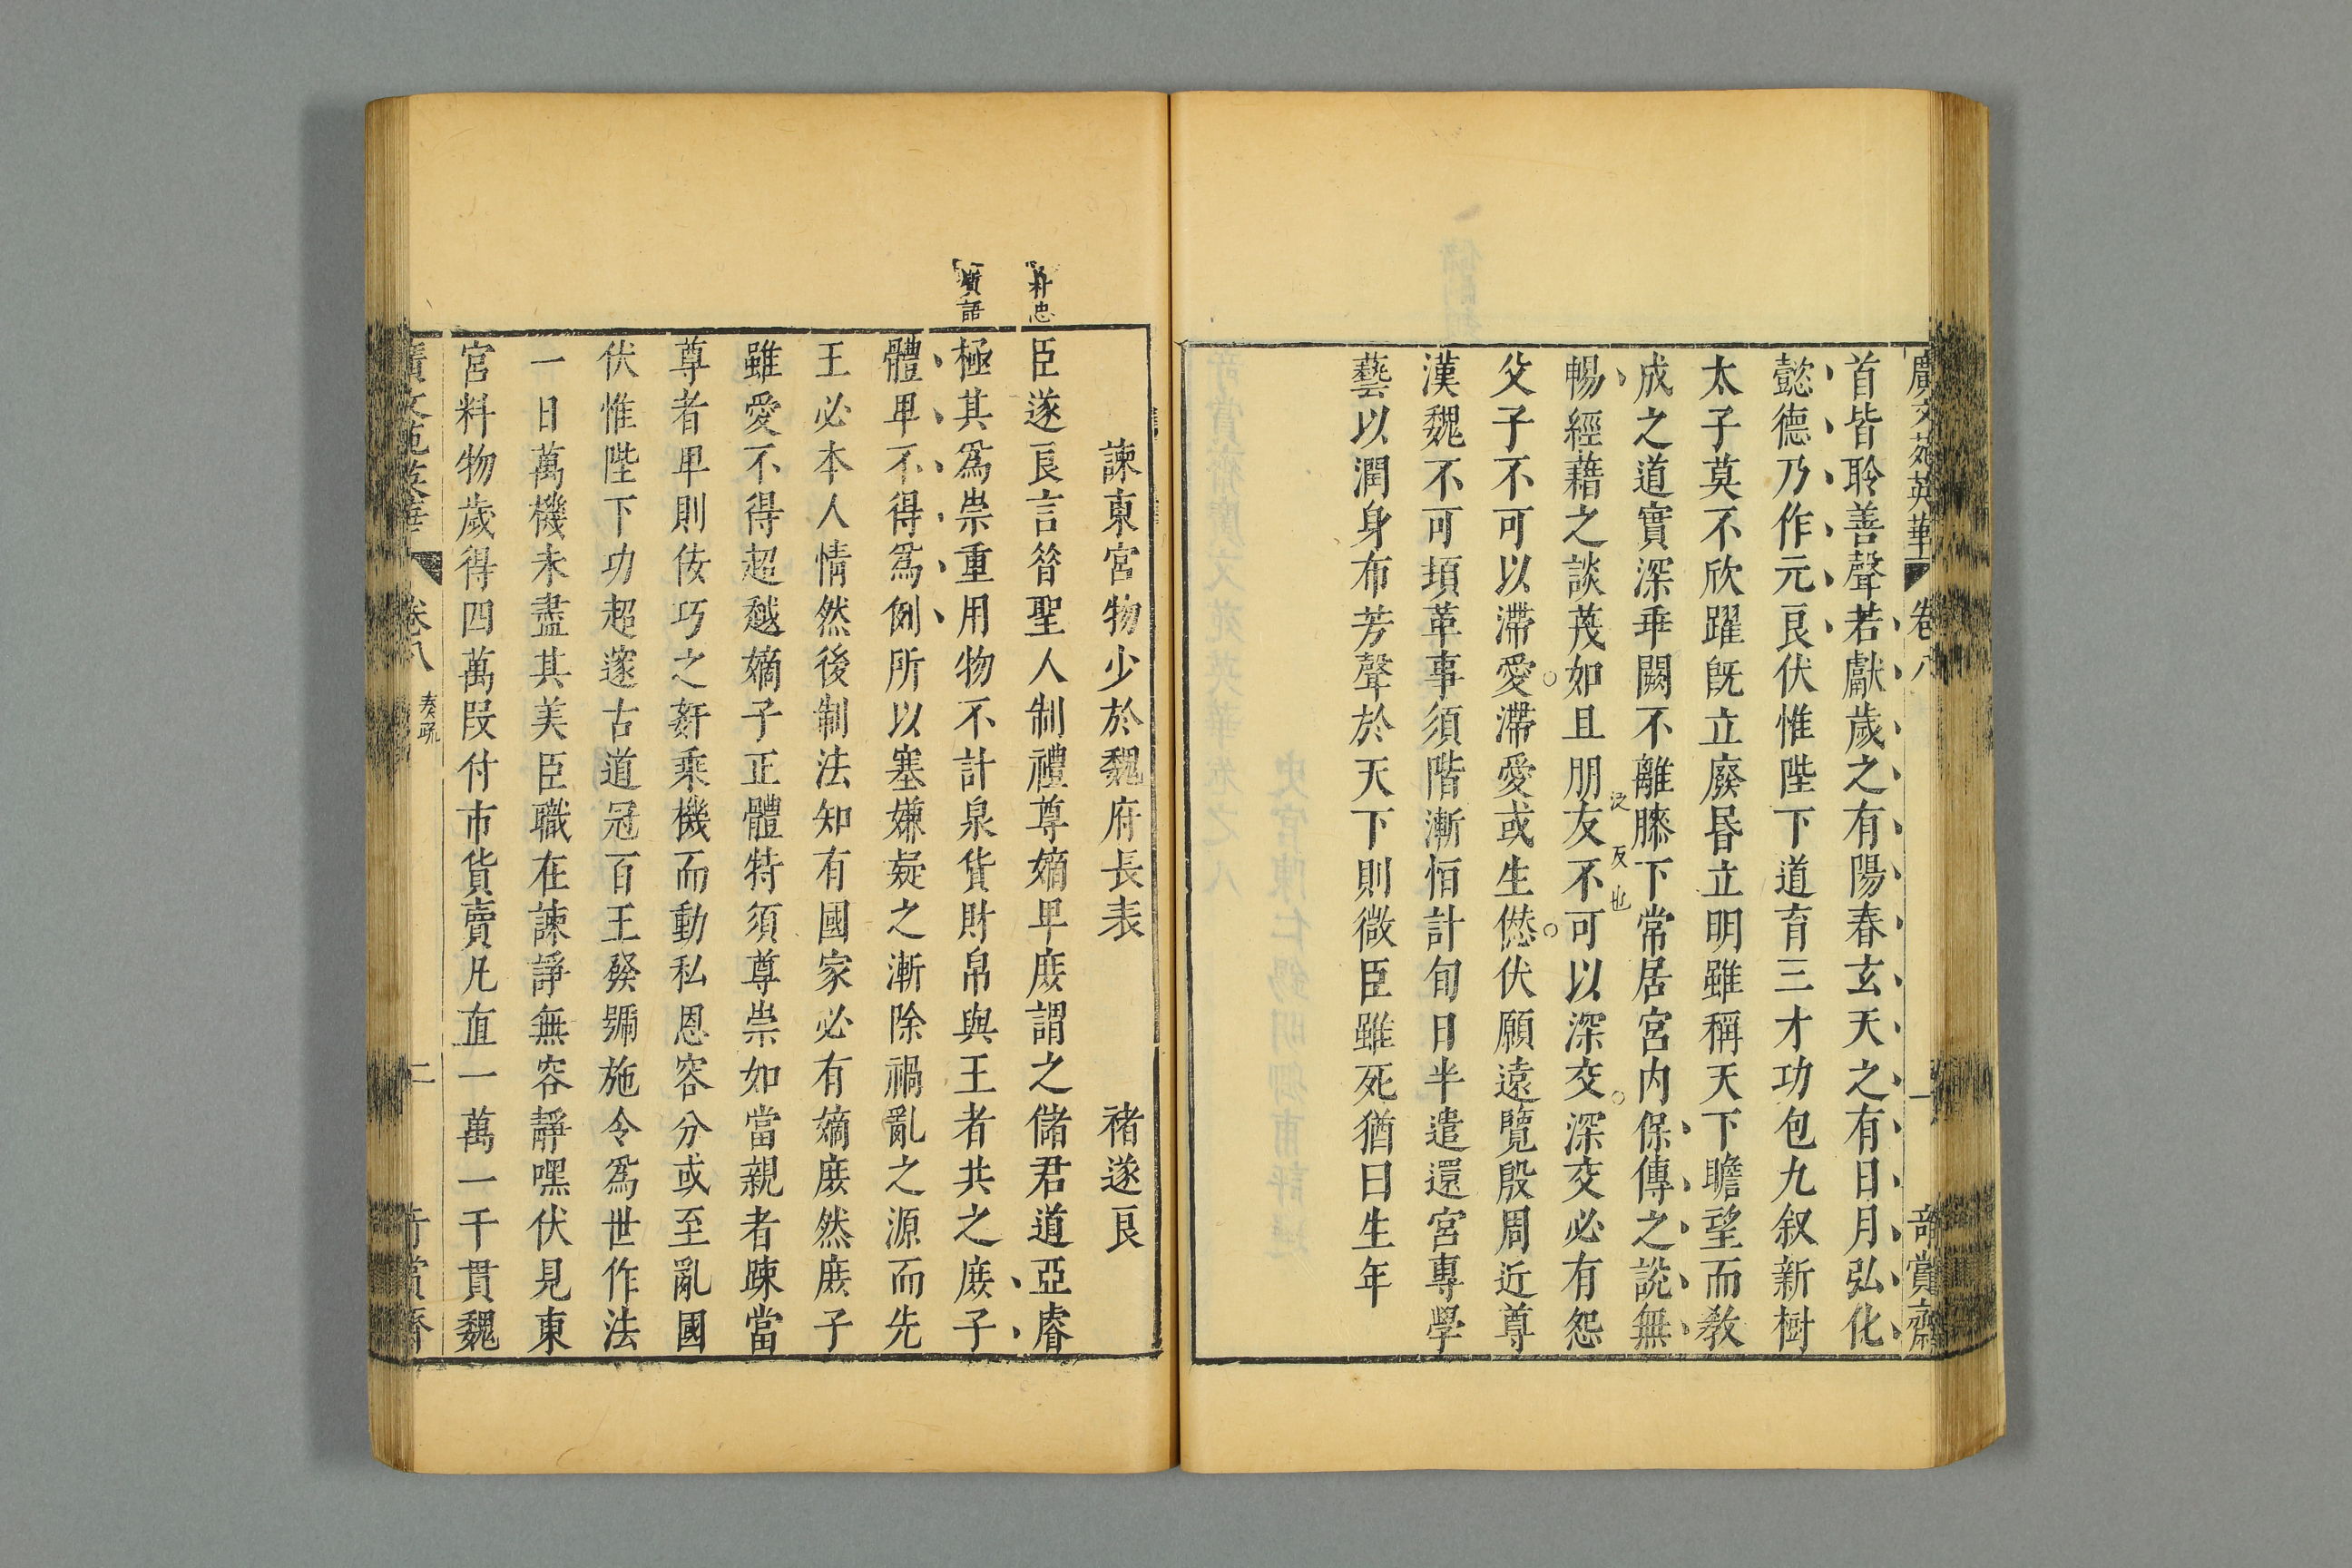 廣文苑英華 卷八 一 奇賞齋
首皆聆善聲若獻歲之有陽春玄天之有日月弘化
懿德乃作元良伏惟陛下道育三才功包九叙新樹
太子莫不欣躍旣立廢昬立明雖稱天下瞻望而敎
成之道實深乖闕不離膝下常居宮内保傳之說無
泛 反 也
暢經藉之談茂如且朋友不可以深交深交必有怨
父子不可以滯愛滯愛或生僽伏願遠覽殷周近尊
漢魏不可頊革事須階漸恒計旬日半遣還宮專學
藝以潤身布芳聲於天下則微臣雖死猶曰生年
諫東宮物少於魏府長表 禇遂良
朴忠
臣遂良言昝聖人制禮尊嫡卑庻謂之儲君道亞睿
質語
極其爲崇重用物不計泉貨財帛與王者共之庻子
體卑不得爲例所以塞嫌疑之漸除禍亂之源而先
王必本人情然後制法知有國家必有嫡庻然庻子
雖愛不得超越嫡子正體特須尊崇如當親者踈當
尊者卑則佞巧之姧乘機而動私恩容分或至亂國
伏惟陛下功超邃古道冠百王發號施令爲世作法
一日萬機未盡其美臣職在諫諍無容靜嘿伏見東
宮料物歲得四萬叚付市貨賣凡直一萬一千貫魏
廣文苑英華 卷八 奏疏 二 奇賞齋